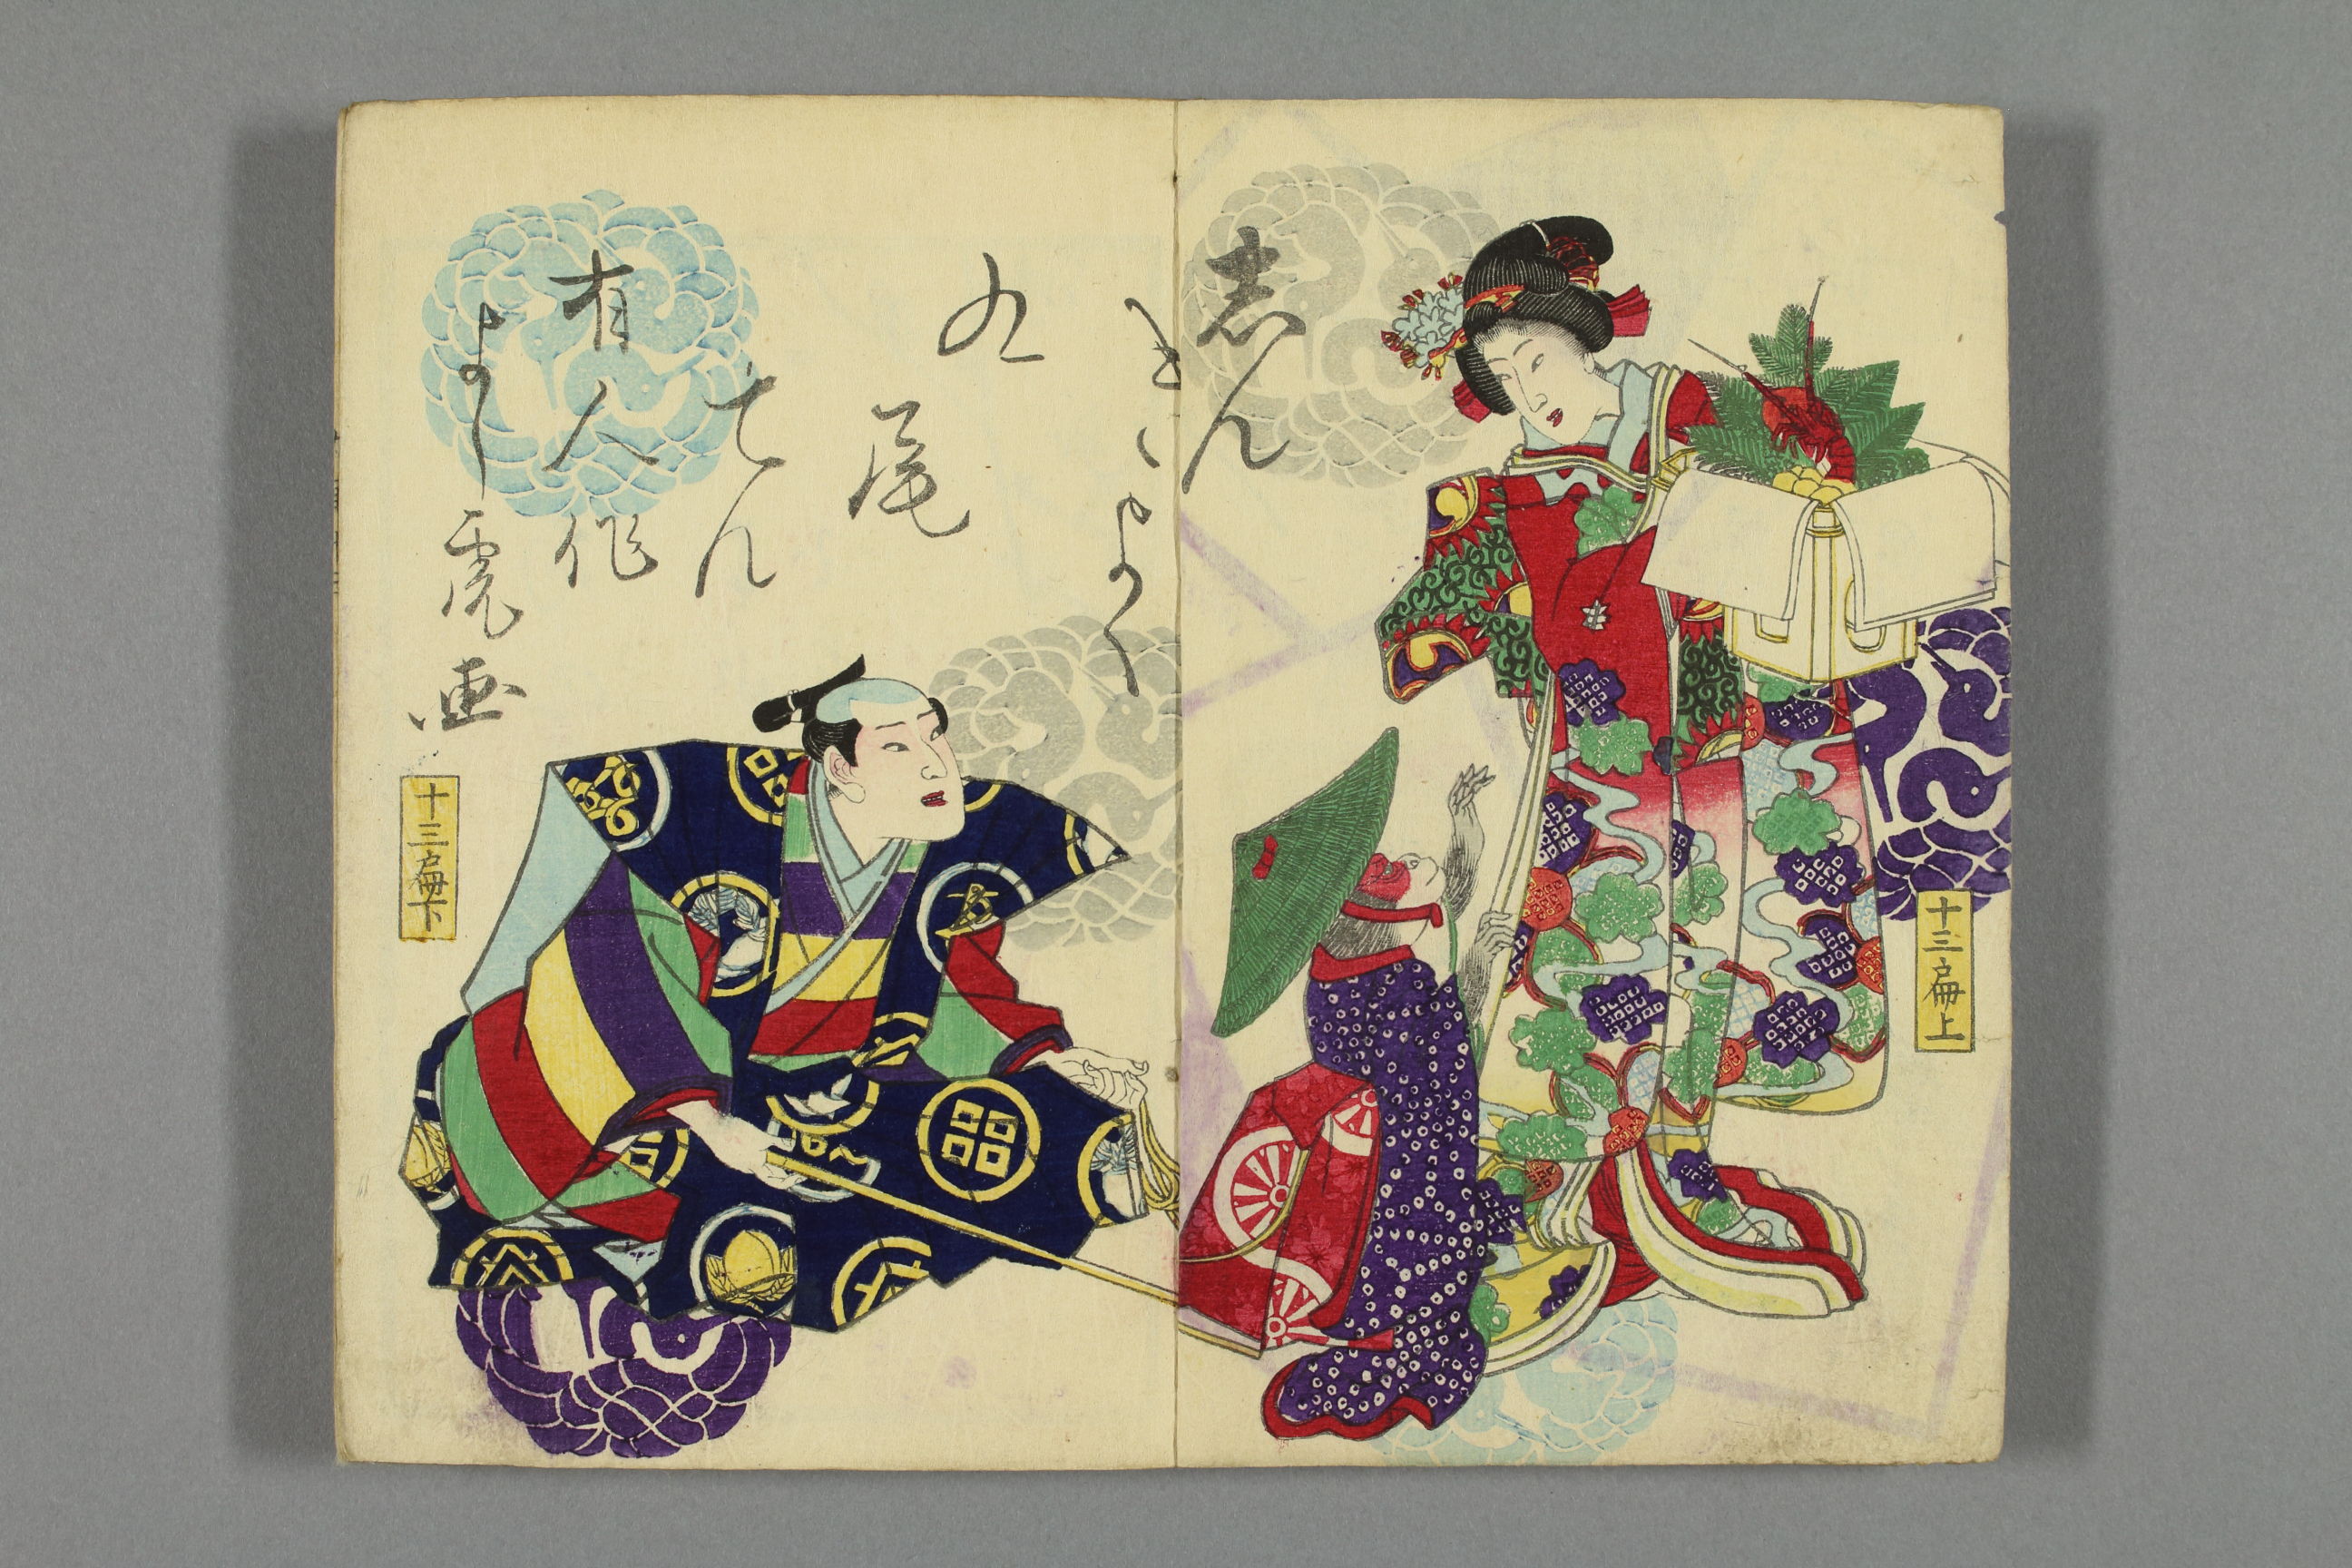 十三扁冊上
志ん
きよく
九
尾
でん
有人作
よし虎画
十三扁冊下